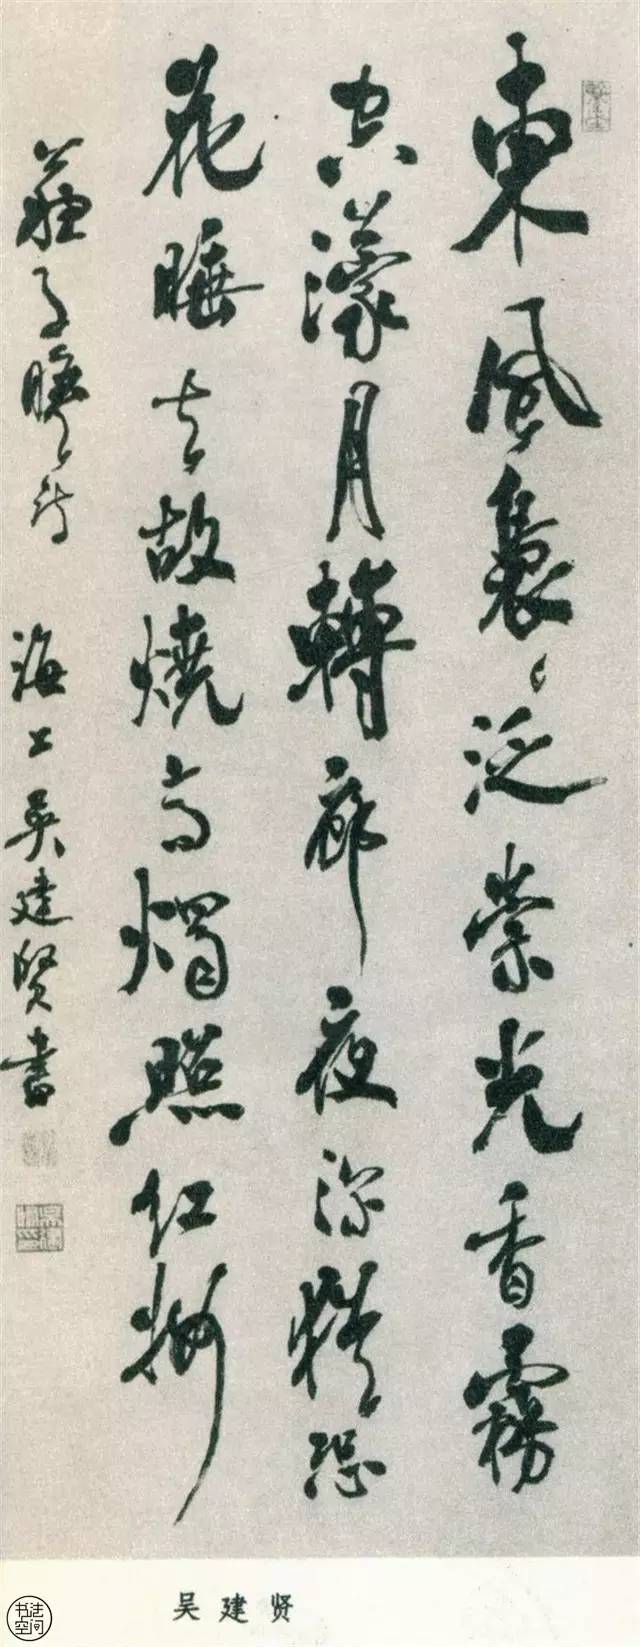 東風裊々泛崇光香霧
空濛月轉廊夜深恐
花睡去故燒高燭照紅妝
蘇子瞻詩 海上吴建賢書
吴建贤
书法空间